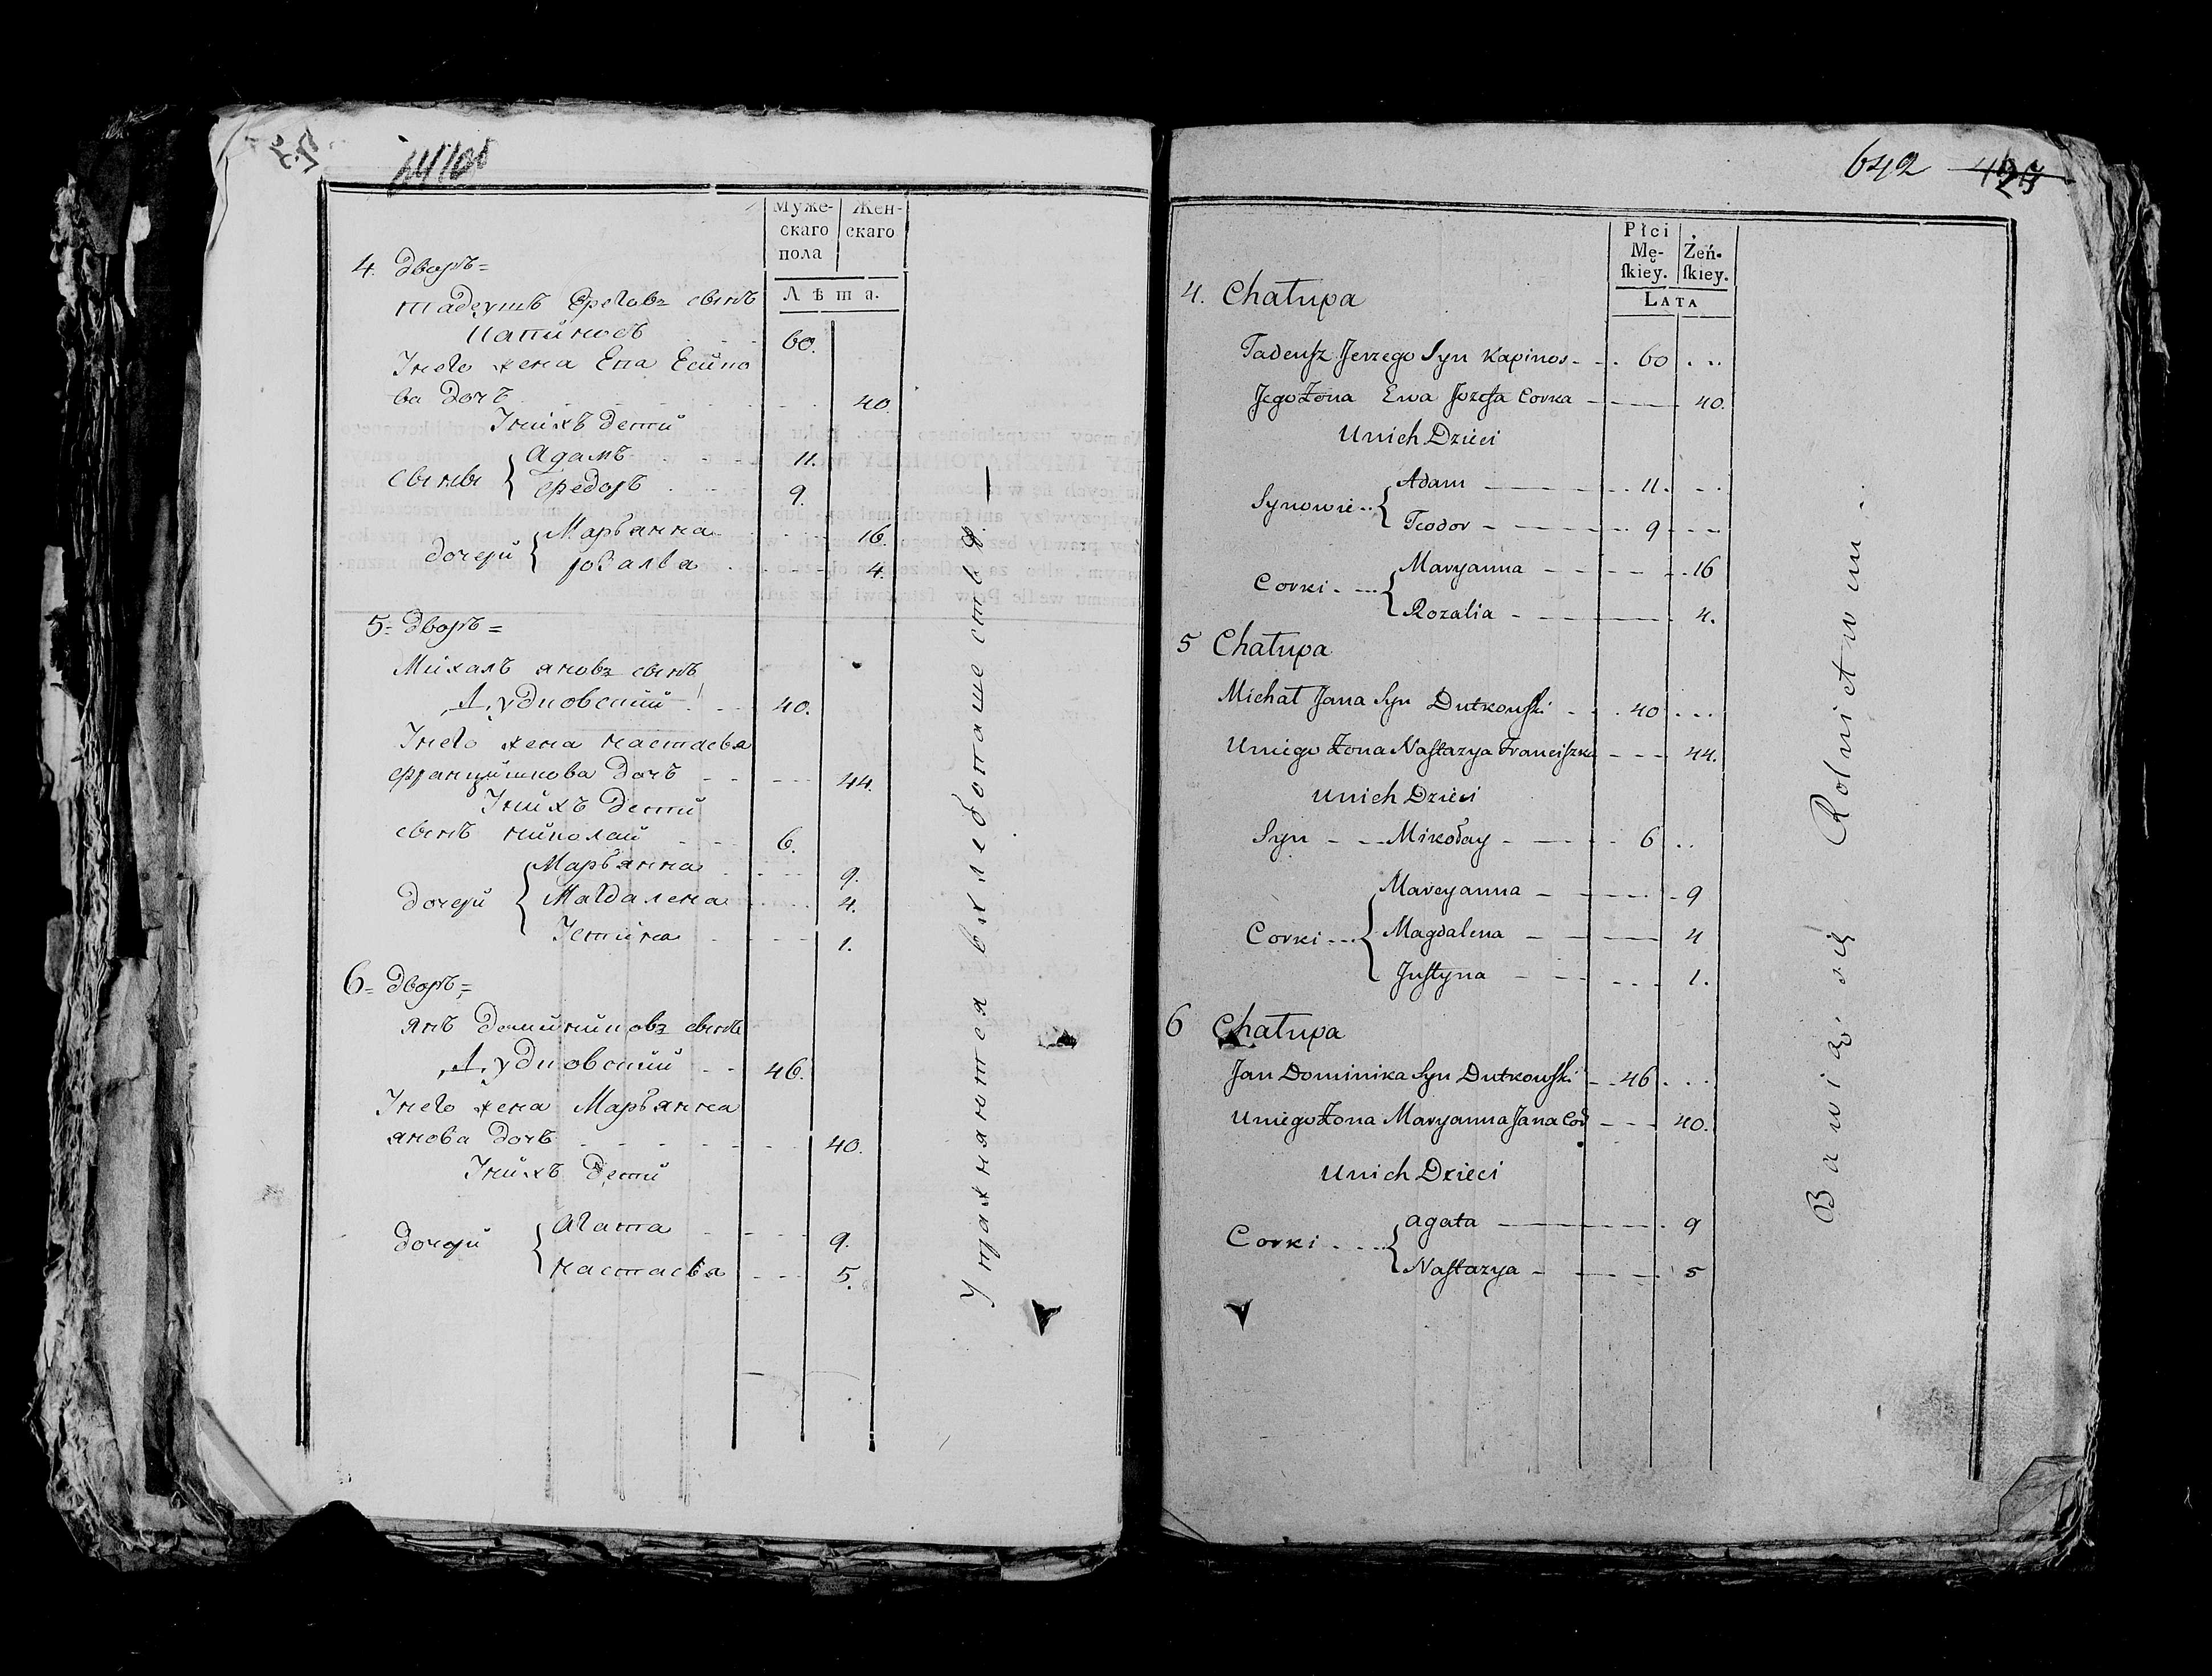 Муже-
скаго
пола
Жен-
скаго
Лѣта.
4. Дворъ=
Тадеушъ Ереговъ сынъ
Капиносъ 60.
Унего жена Ева Есипо
ва дочь 40
Унихъ дети
сынове { Адамъ 11.
Федоръ 9.
дочери { Марьянна 16.
розалья 4.
5= Дворъ=
Михалъ яновъ сынъ
Дудковский 40.
Унего жена настасья
францишкова дочь 44.
Унихъ дети
сынъ николай 6.
дочери { Марьянна 9.
Магдалена 4.
Устина 1.
6= Дворъ=
янъ доминиковъ сынъ
Дудковский 46.
Унего жена Марьянна
янова дочь 40.
Унихъ дети
дочери { Агата 9.
настасья 5.
Упражняются в хлебопашестве
642
Płci
Mę-
ſkiey.
Żeń-
ſkiey.
LATA
4. Chałupa
Tadeuſz Jerzego Syn Kapinos 60
Jego Żona Ewa Jozefa Corka 40.
U nich Dzieci
Synowie { Adam 11.
Teodor 9
Corki { Maryanna 16
Rozalia 4.
5 Chałupa
Michał Jana Syn Dutkowſki 40
U niego Żona Naſtazya Franciſzka 44.
U nich Dzieci
Syn Mikołay 6
Corki { Maryanna 9
Magdalena 4
Juſtyna 1.
6 Chałupa
Jan Dominika Syn Dutkowſki 46
U niego Żona Maryanna Jana Cor 40.
U nich Dzieci
Corki { agata 9
Naſtazya 5
Bawią się Rolnictwem